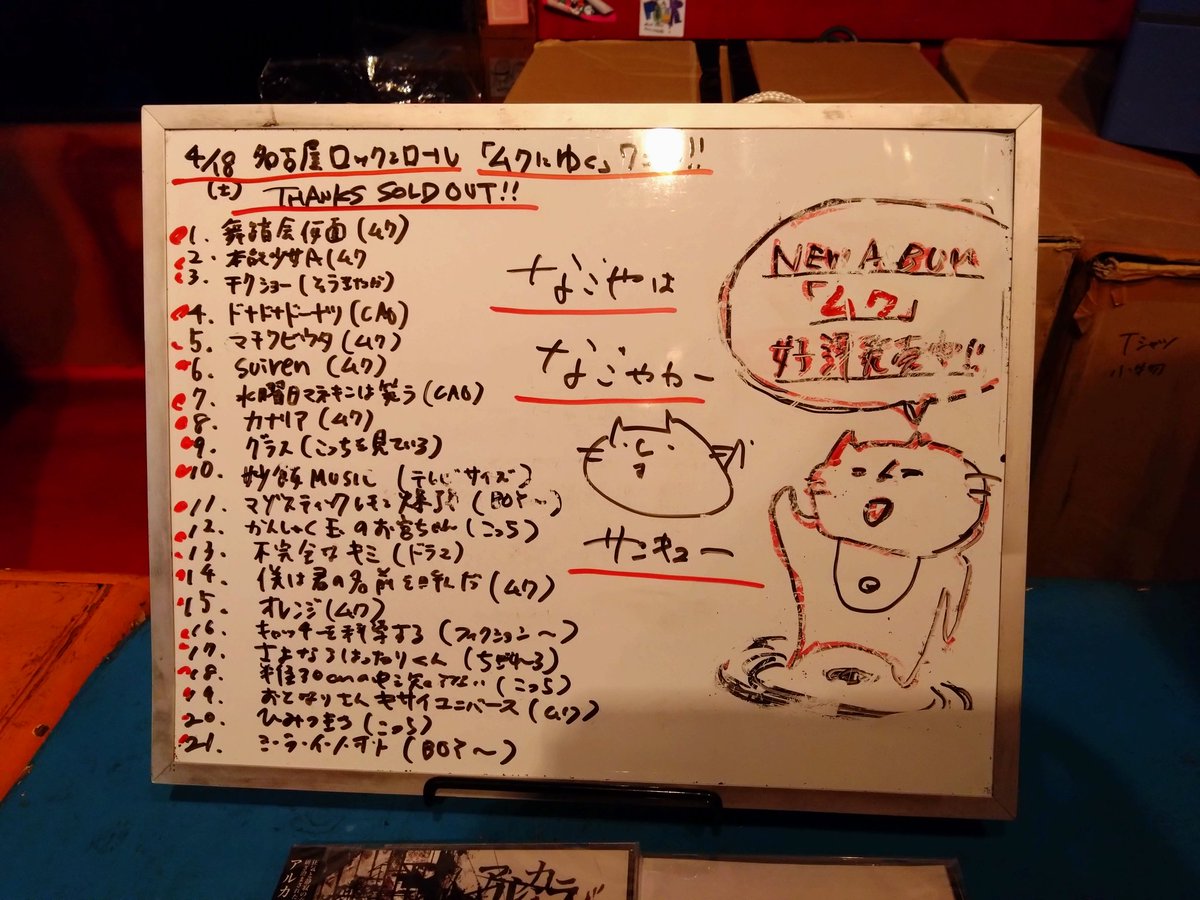 4/18 名古屋ロックンロール 「ムクにゆく」ワンマン!!
(土) THANKS SOLD OUT!!
1. 舞踏会仮面(ムク)
2. 本記少女A(ムク
3. チクショー(そうきたか)
4. ドナドナドーナツ(CAO)
5. マチクビウタ(ムク)
6. suiren (ムク)
7. 水曜日マネキンは笑う(CAO)
8. カナリア(ムク)
9. グラス(こっちを見ている)
10. 妙飯MUSIC (テレビサイズ)
11. マジスティックレモン爆弾(BOY〜)
12. かんしゃく玉のお宮ちゃん(こっち)
13. 不完全なキミ(ドラマ)
14. 僕は君の名前を呼んだ(ムク)
15. オレンジ(ムク)
16. キャッチーを科学する(フィクション〜)
17. さよならはったりくん(ちがれ〜る)
18. 半径30cmの中を知らない(こっち)
19. おとなりさんキサイユニバース(ムク)
20. ひみつきち(こっち)
21. ミ・ラ・イ・ノ・オ・ト(BOY〜)
なごやは
なごやかー
サンキュー
NEW ALBUM
「ムク」
好評発売中!!
Tシャツ
アルカ
アルカラ